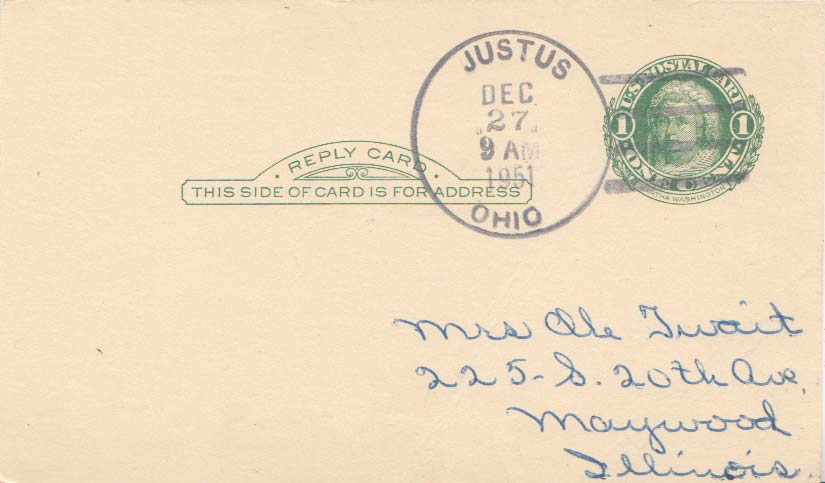 JUSTUS
DEC
27
9 AM
1951
OHIO
U.S. POSTAL CARD
1 1
ONE CENT
MARTHA WASHINGTON
REPLY CARD
THIS SIDE OF CARD IS FOR ADDRESS
Mrs Ole Twait
225-S. 20th Ave,
Maywood
Illinois.